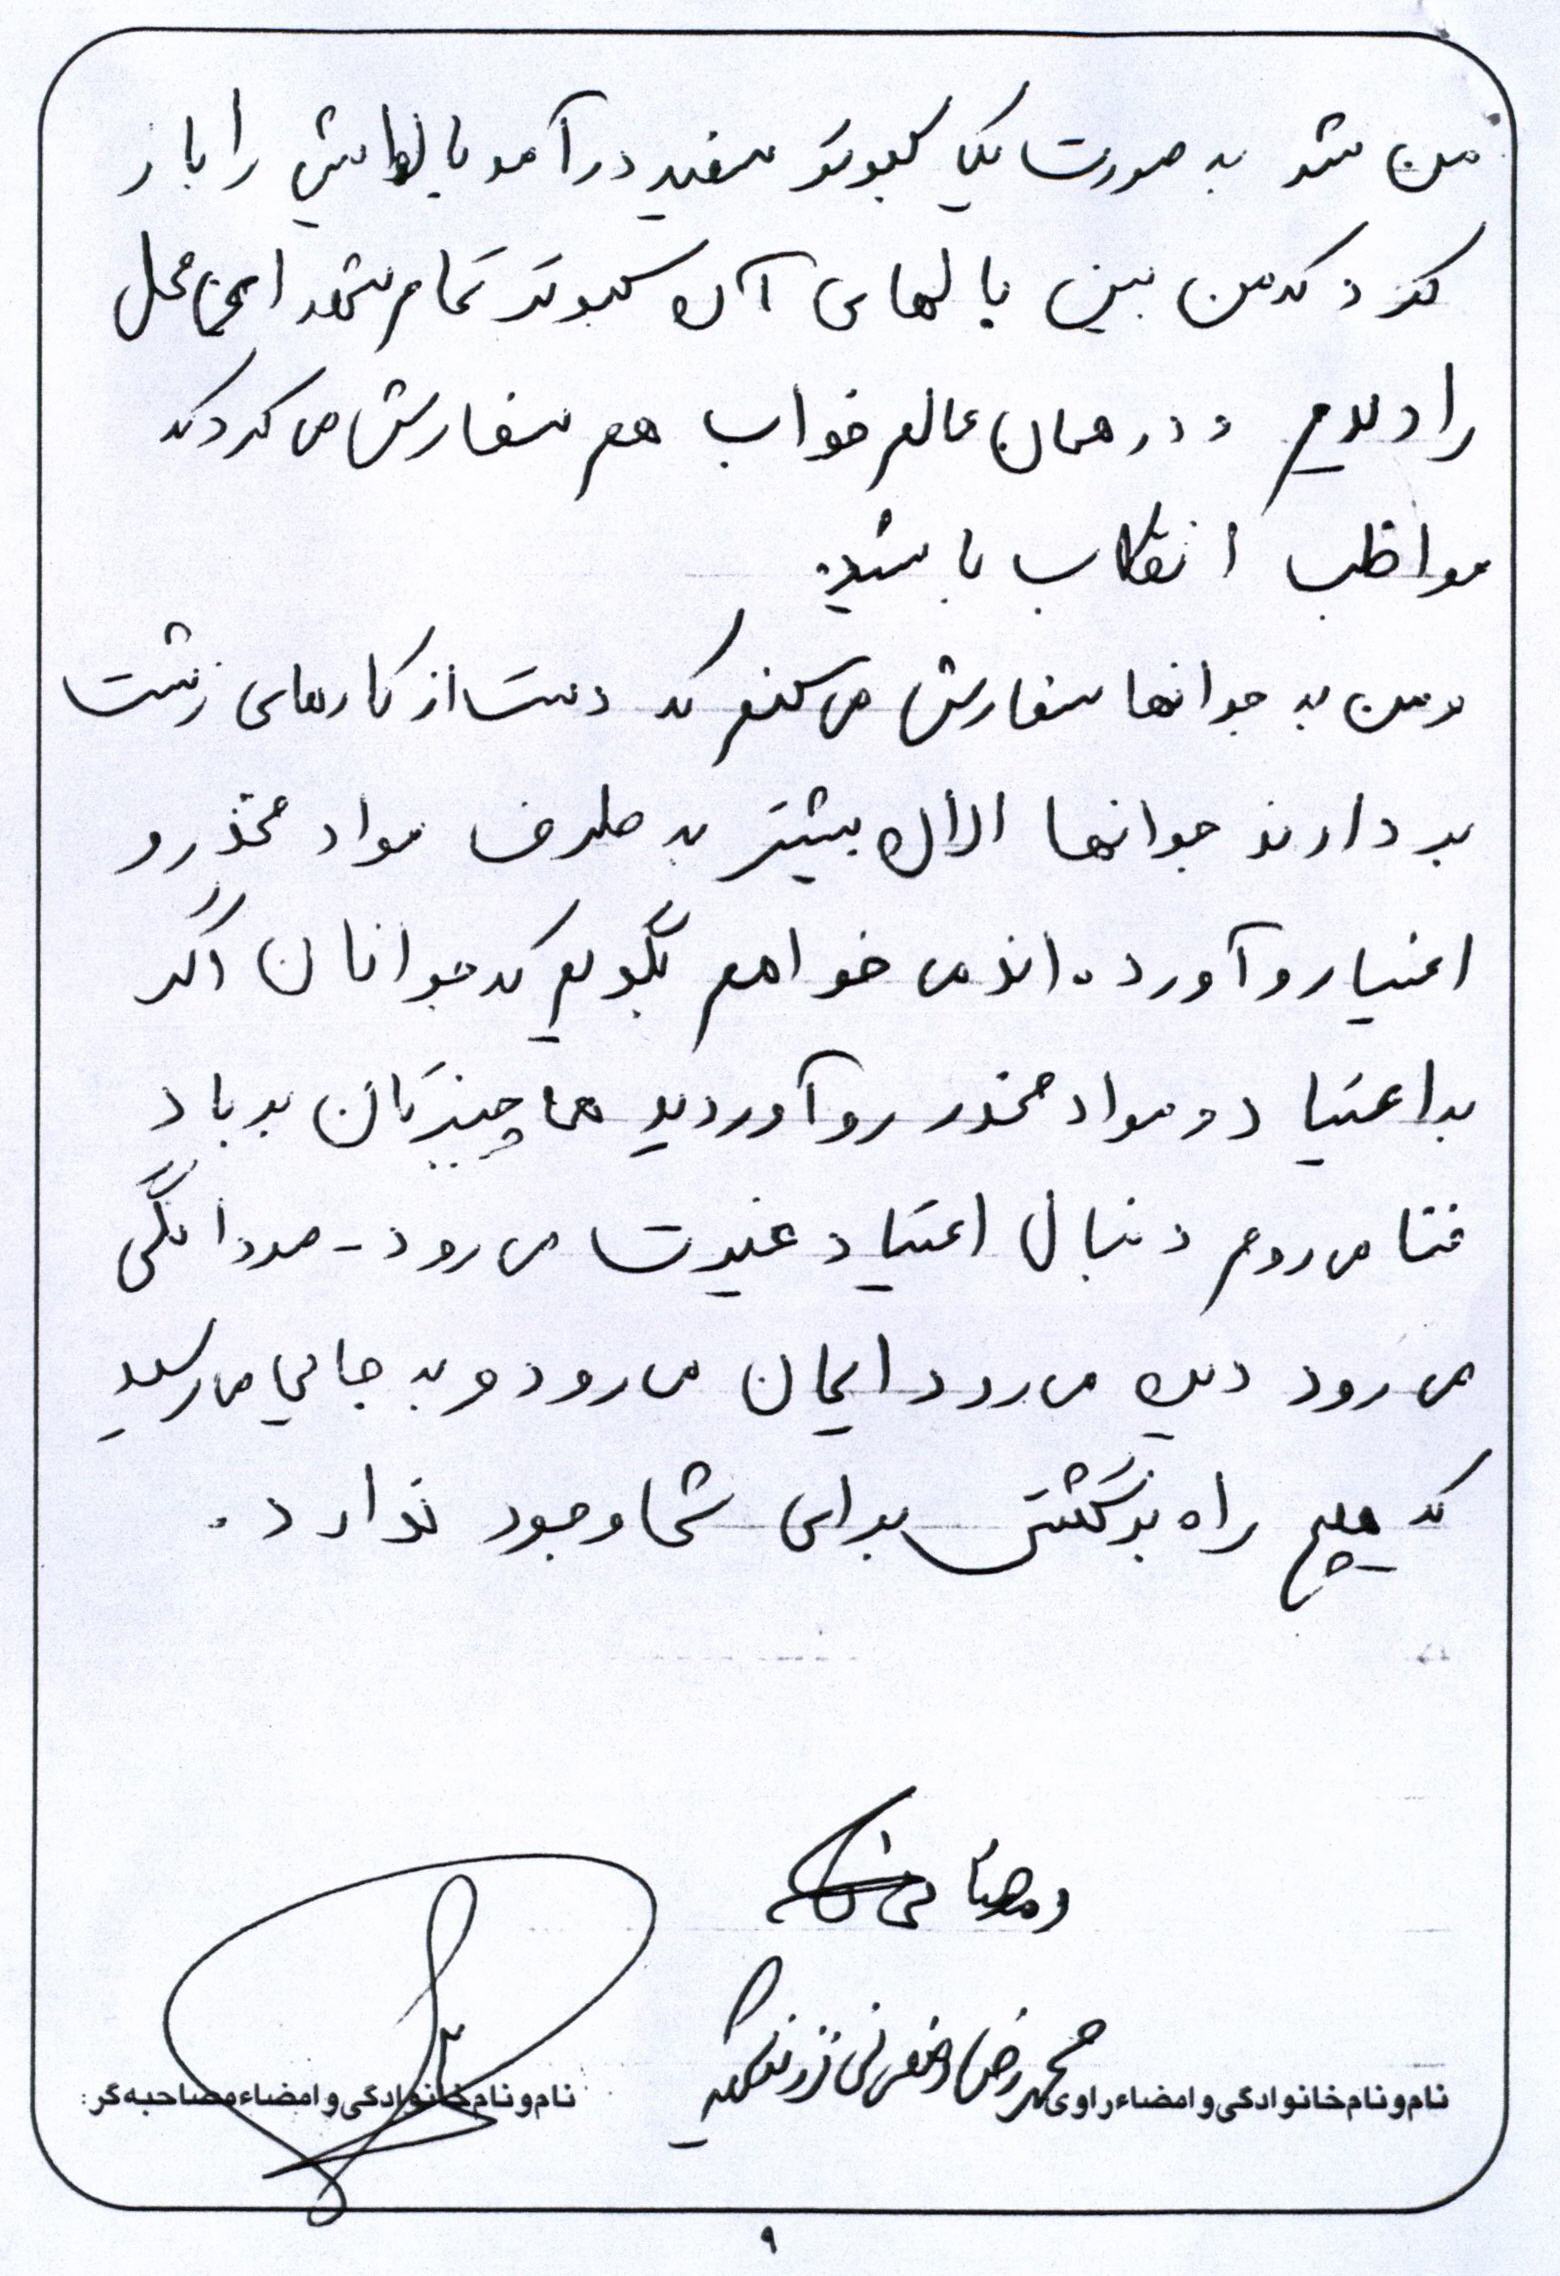 من شد به صورت یک کبوتر سفید درآمد بالهایش را باز
کرد که من بین بالهای آن کبوتر تمام شهدا این محل
را دیدم و در همان عالم خواب هم سفارش می کردند
مواظب انقلاب باشید.
و من به جوانها سفارش می کنم که دست از کارهای زشت
بردارند جوانها الان بیشتر به طرف مواد مخدر و
اعتیاد رو آورده اند می خواهم بگویم که جوانان اگر
به اعتیاد و مواد مخدر رو آوردید همه چیزتان بر باد
فنا می رود دنبال اعتیاد غیرت می رود - مردانگی
می رود دین می رود ایمان می رود و به جایی می رسید
که هیچ راه برگشتی برای شما وجود ندارد.
نام و نام خانوادگی و امضاء راوی محمدرضا
نام و نام خانوادگی و امضاء مصاحبه گر:
۹